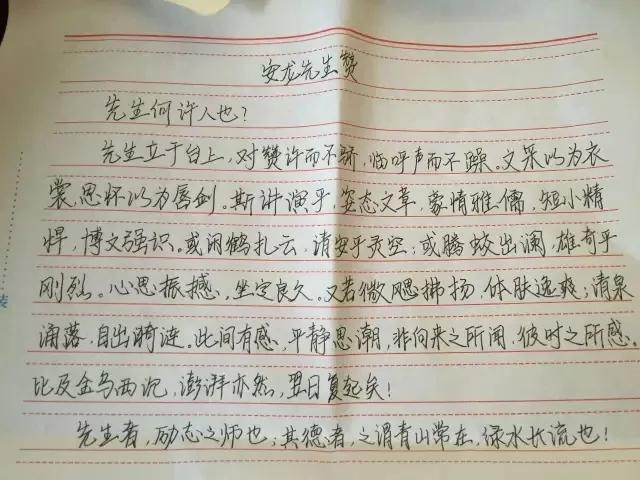 安龙先生赞
先生何许人也?
先生立于台上,对赞许而不骄,临呼声而不躁。文采以为衣
裳,思怀以为唇剑。斯讲演乎,姿态文章,豪情雅儒,短小精
悍,博文强识。或闲鹤扎云,清安乎灵空;或腾蛟出澜,雄奇乎
刚烈。心思振撼,坐定良久。又若微飔拂扬,体肤逸爽;清泉
涌落,自出漪涟。此间有感,平静思潮,非向来之所闻,彼时之所感。
比及金乌西沉,澎湃亦然,翌日复起矣!
先生者,励态之师也;其德者,之谓青山常在,绿水长流也!